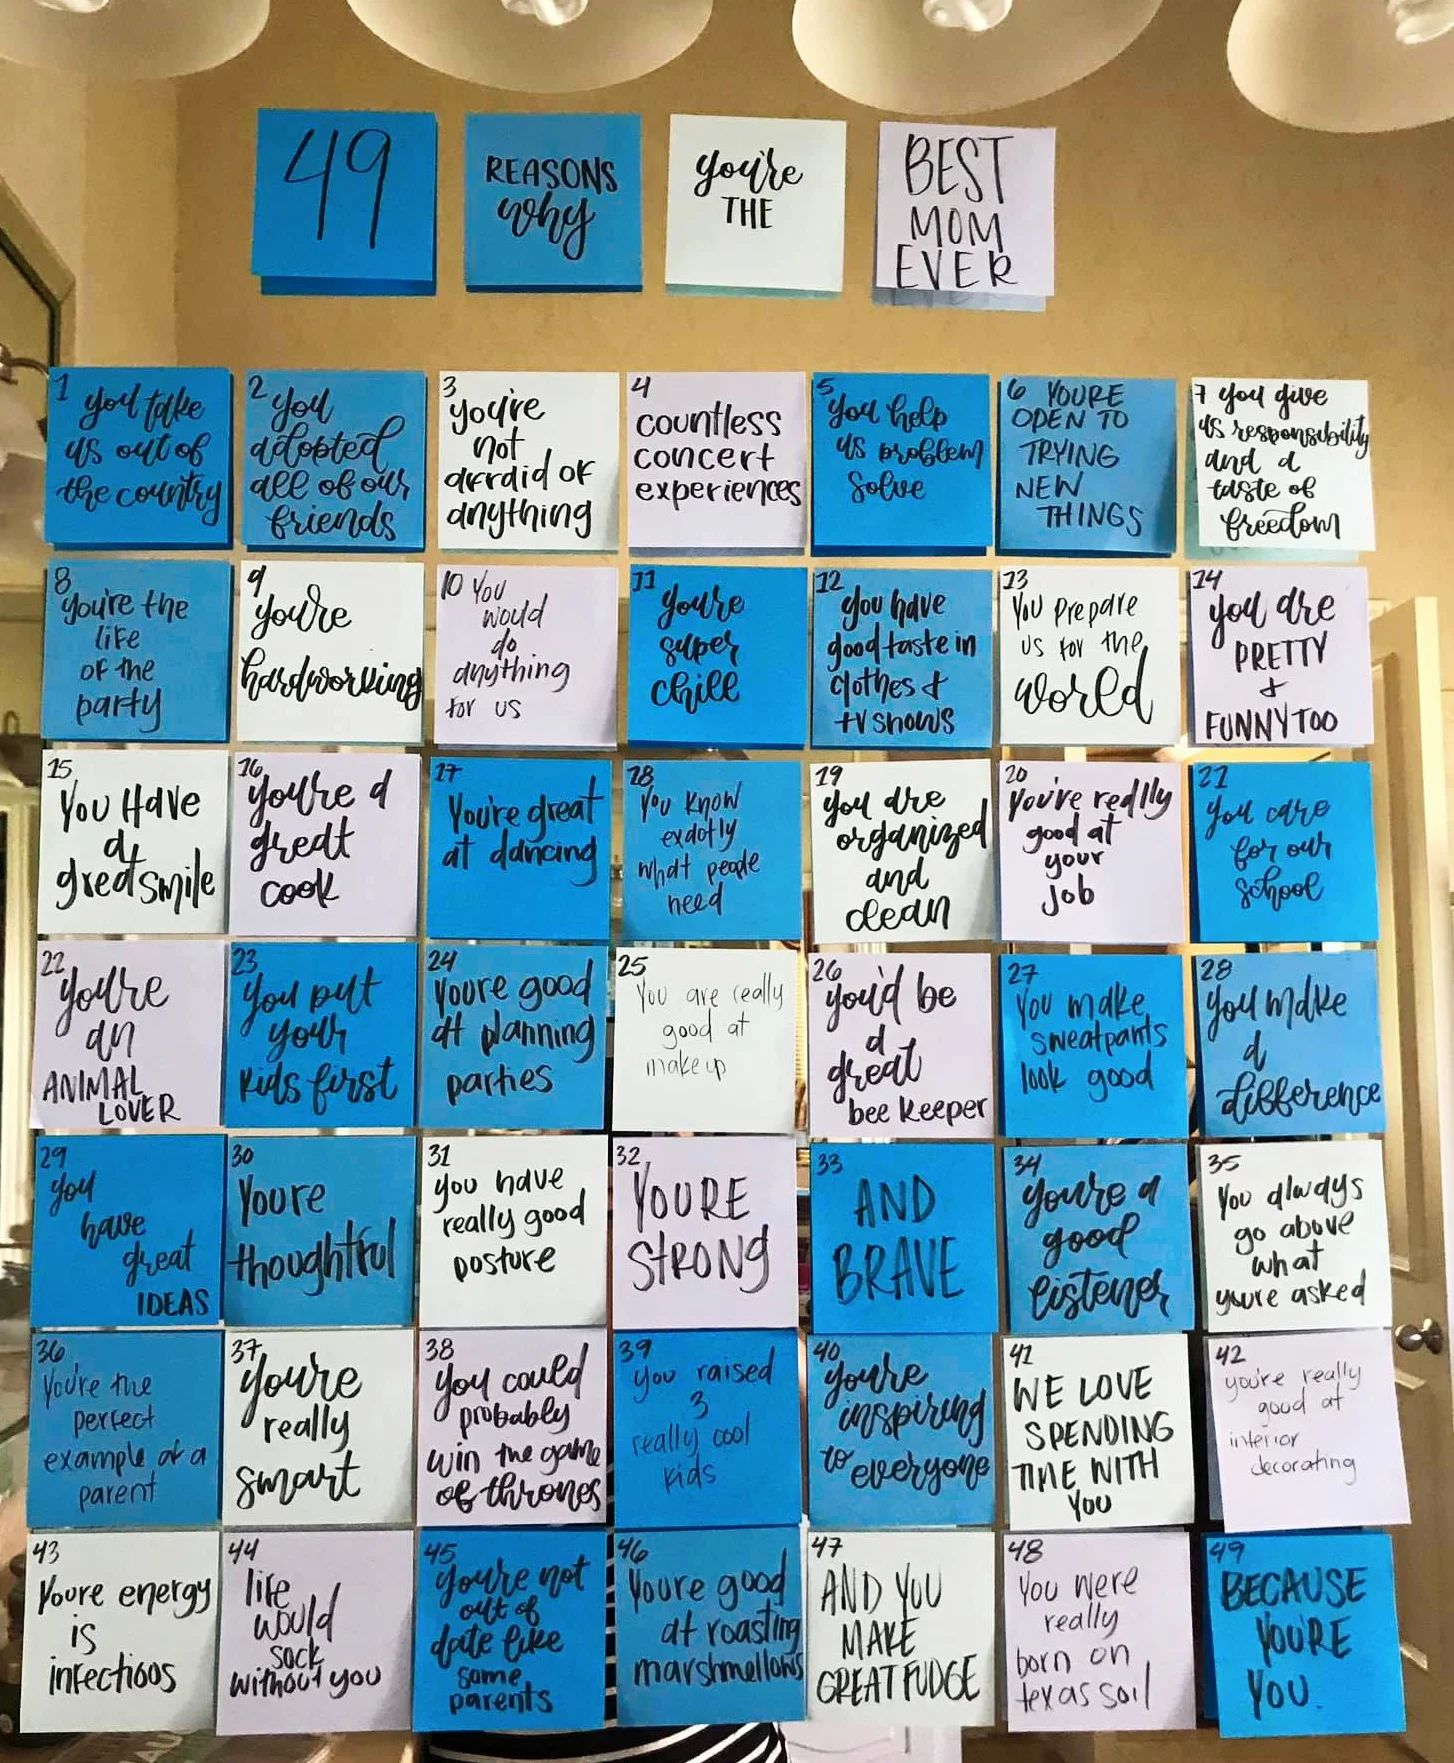 49
REASONS
why
you're
THE
BEST
MOM
EVER
1
you take
us out of
the country
2
you
adopted
all of our
friends
3
you're
not
afraid of
anything
4
countless
concert
experiences
5
you help
us problem
solve
6 YOU'RE
OPEN TO
TRYING
NEW
THINGS
7 you give
us responsibility
and a
taste of
freedom
8
you're the
life
of the
party
9
you're
hardworking
10 You
would
do
anything
for us
11
you're
super
chill
12
you have
good taste in
clothes &
tv shows
13
You prepare
us for the
world
14
you are
PRETTY
&
FUNNY TOO
15
You Have
a
great smile
16
you're a
great
cook
17
You're great
at dancing
18
You know
exactly
what people
need
19
you are
organized
and
clean
20
you're really
good at
your
job
21
you care
for our
school
22
you're
an
ANIMAL
LOVER
23
you put
your
kids first
24
youre good
at planning
parties
25
You are really
good at
makeup
26
you'd be
a
great
bee keeper
27
you make
sweatpants
look good
28
you make
a
difference
29
you
have
great
IDEAS
30
Youre
thoughtful
31
you have
really good
posture
32
YOURE
STRONG
33
AND
BRAVE
34
you're a
good
listener
35
You always
go above
what
youre asked
36
You're the
perfect
example of a
parent
37
you're
really
smart
38
you could
probably
win the game
of thrones
39
you raised
3
really cool
kids
40
you're
inspiring
to everyone
41
WE LOVE
SPENDING
TIME WITH
YOU
42
you're really
good at
interior
decorating
43
Youre energy
is
infectious
44
life
would
suck
without you
45
you're not
out of
date like
some
parents
46
Youre good
at roasting
marshmellows
47
AND YOU
MAKE
GREAT FUDGE
48
You were
really
born on
texas soil
49
BECAUSE
YOU'RE
YOU.